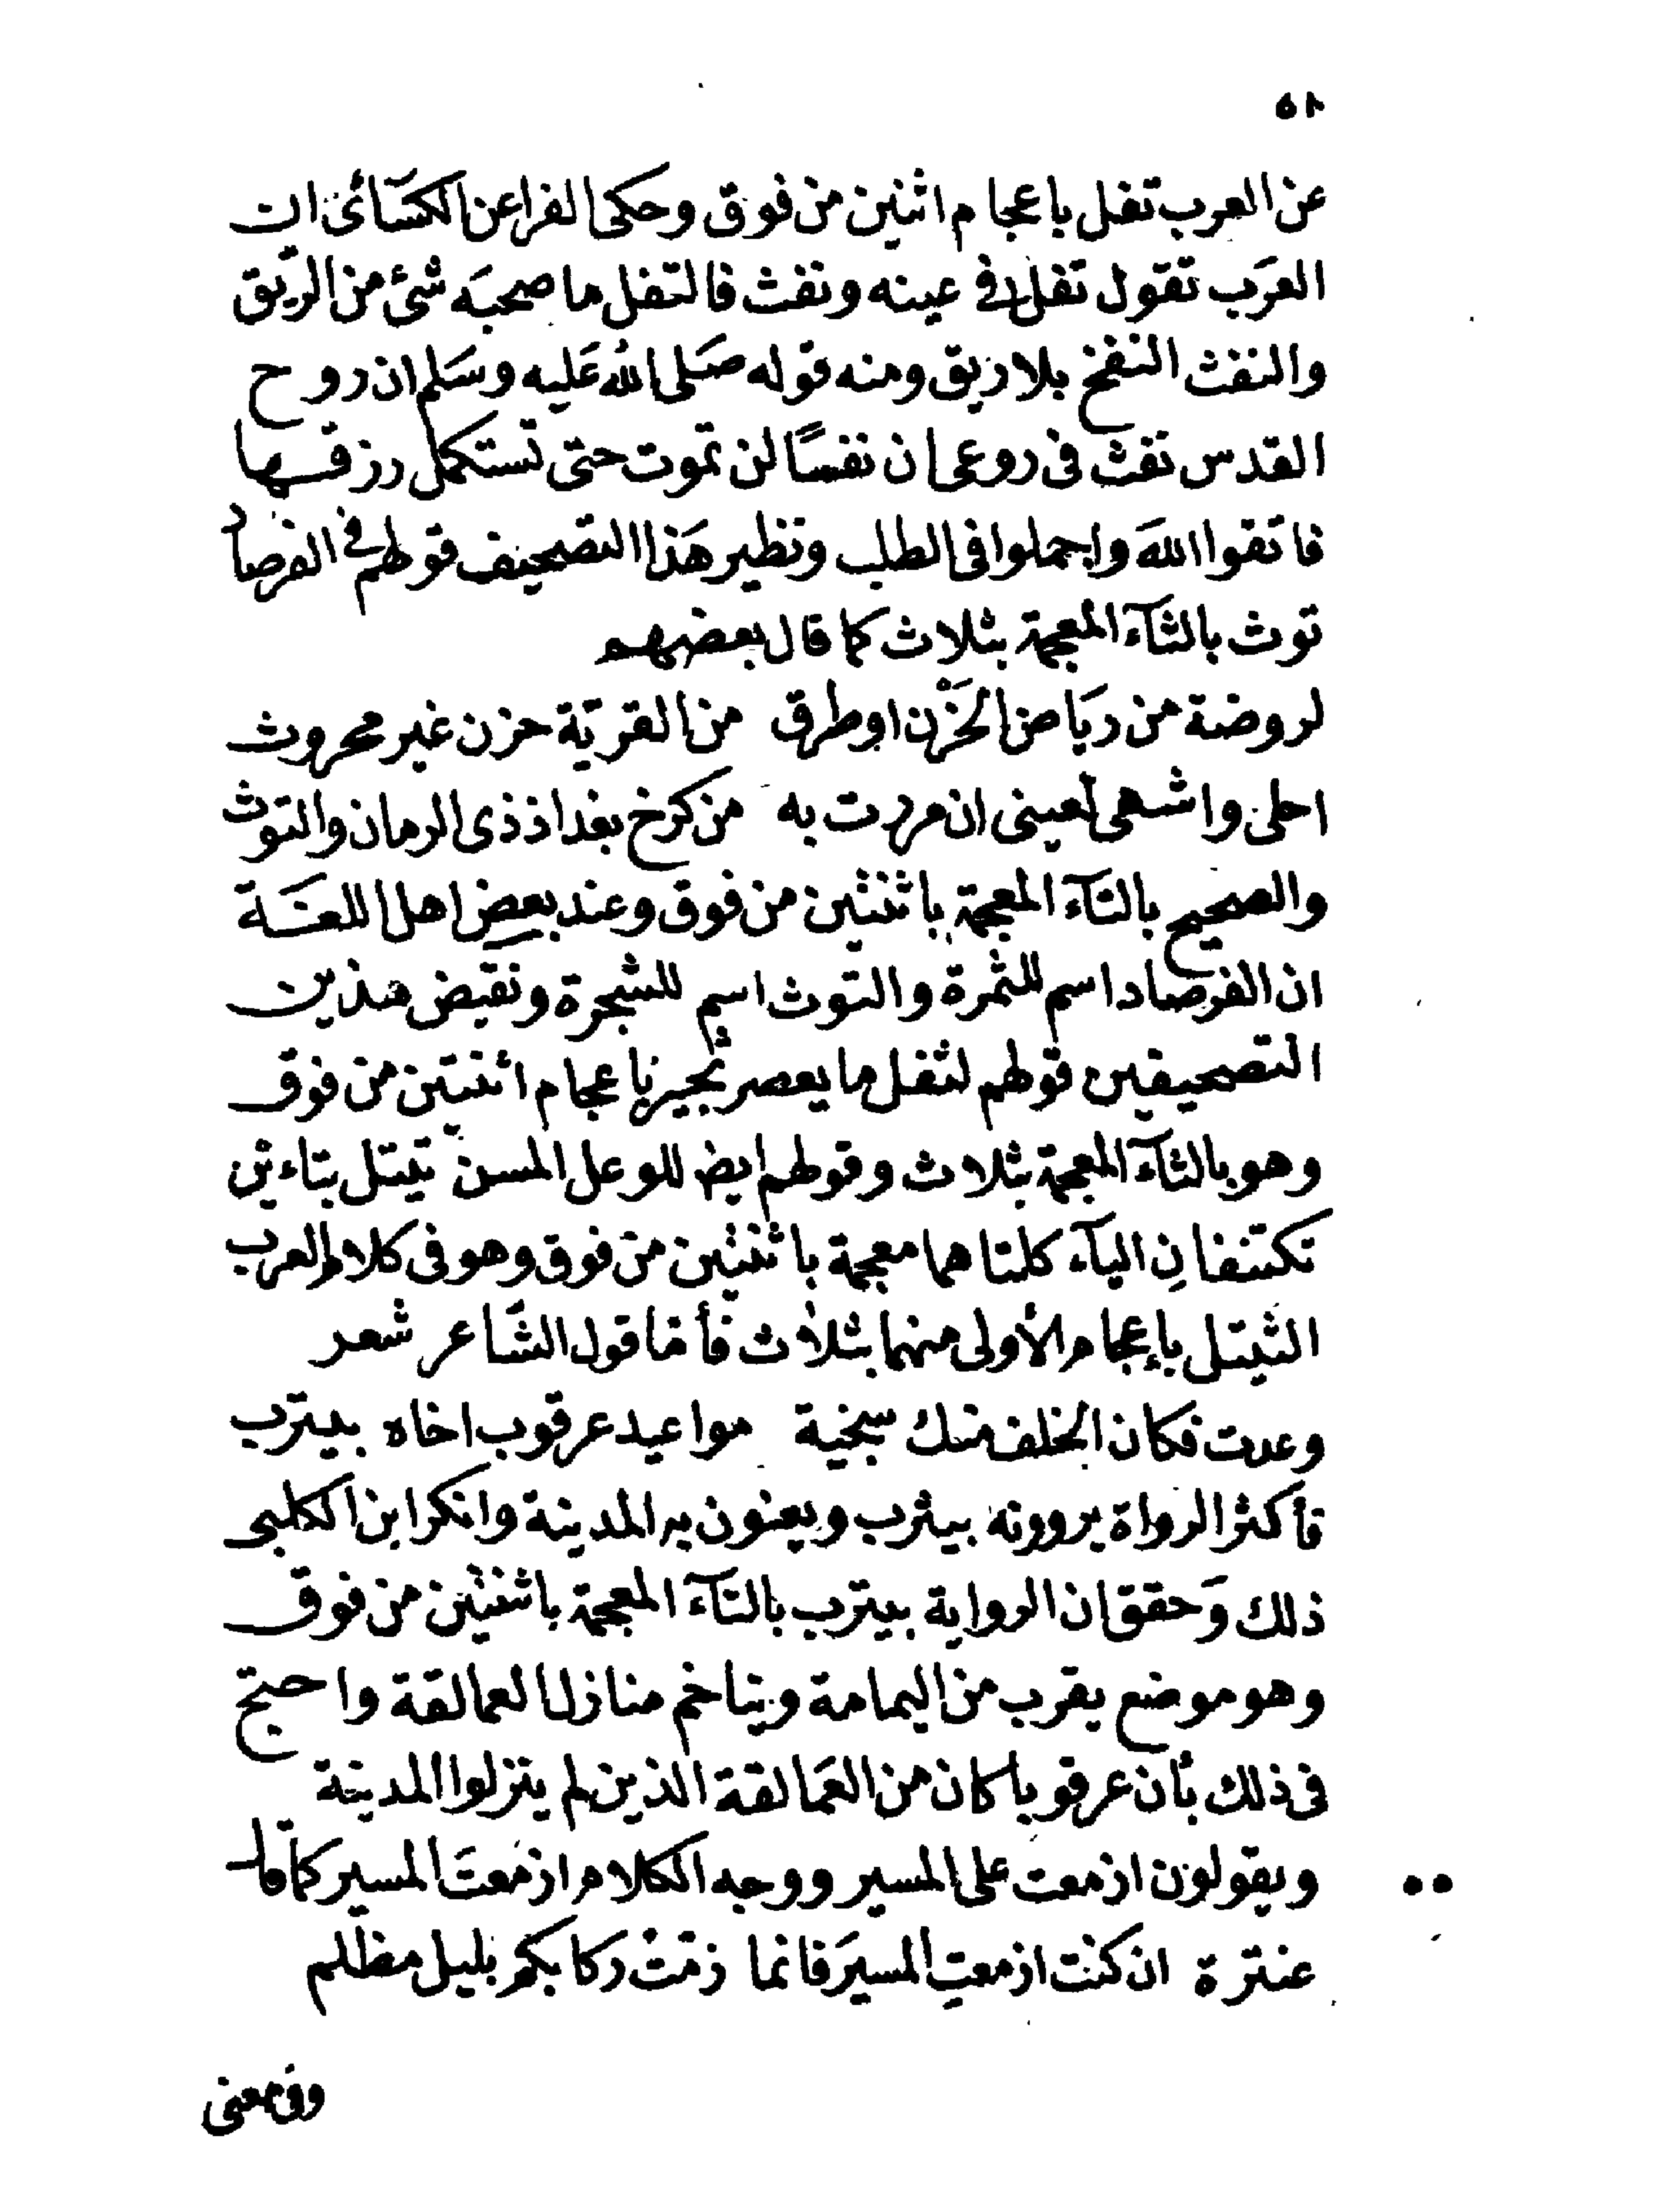 ٥١
عن العرب تفل باعجام اثنين من فوق وحكى الفرا عن الكسَائى ان
العرَب تقول تفل فى عينه ونفث فالتفل ما صحبَه شئ من الرّيق
والنفث النفخ بلا ريق ومنه قوله صَلى اللهُ عَليه وسَلم ان روح
القدس نفث فى روعى ان نفسًا لن تموت حتى تستكمل رزقها
فاتقوا اللهَ واجملوا فى الطلب ونظير هَذا التصحيف قولهم فى الفرصاد
توث بالثآء المعجمة بثلاث كما قال بعضهم
لروضة من ريَاض الحَزْن او طرق من القريّة حزن غير محروث
احلى واشهى لعينى ان مررت به من كرخ بغداذ ذى الرمان والتوث
والصحيح بالتآء المعجمة باثنتين من فوق وعند بعض اهل اللغَة
ان الفرصاد اسم للثمرة والتوث اسم للشجرة ونقيض هذين
التصحيفين قولهم لثفل ما يعصر تجير باعجام اثنتين من فوق
وهو بالثآء المعجمة بثلاث وقولهم ايض للوعل المسن تيتل بتاءين
تكتنفانِ اليآء كلتاهما معجمة باثنتين من فوق وهو فى كلام العرب
الثيتل بإعجام الأولى منهما بثلاث فأمّا قول الشّاعر شعر
وعدت فكان الخلف منك سجية مواعيد عرقوب اخاه بيترب
فأكثر الرواة يروونه بيثرب ويعنون به المدينة وانكر ابن الكلبى
ذلك وَحقق ان الرواية بيترب بالتآء المعجمة باثنتين من فوق
وهو موضع يقرب من اليمامة ويتاخم منازل العمالقة واحتج
فى ذلك بأن عرقوبا كان من العَمالقة الذين لم ينزلوا المدينة
ويقولون ازمعت على المسير ووجه الكلام ازمعتَ المسير كما قال
عنترة ان كنت ازمعتِ المسيرَ فانما زمّتْ ركابكم بليل مظلم
وفى معنى